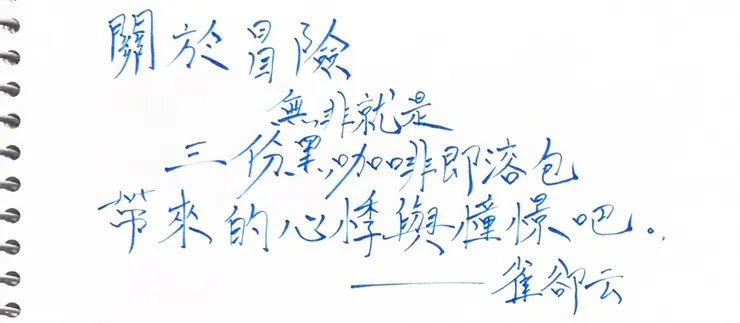 關於冒險
無非就是
三份黑咖啡即溶包
帶來的心悸與憧憬吧。
——雀卻云